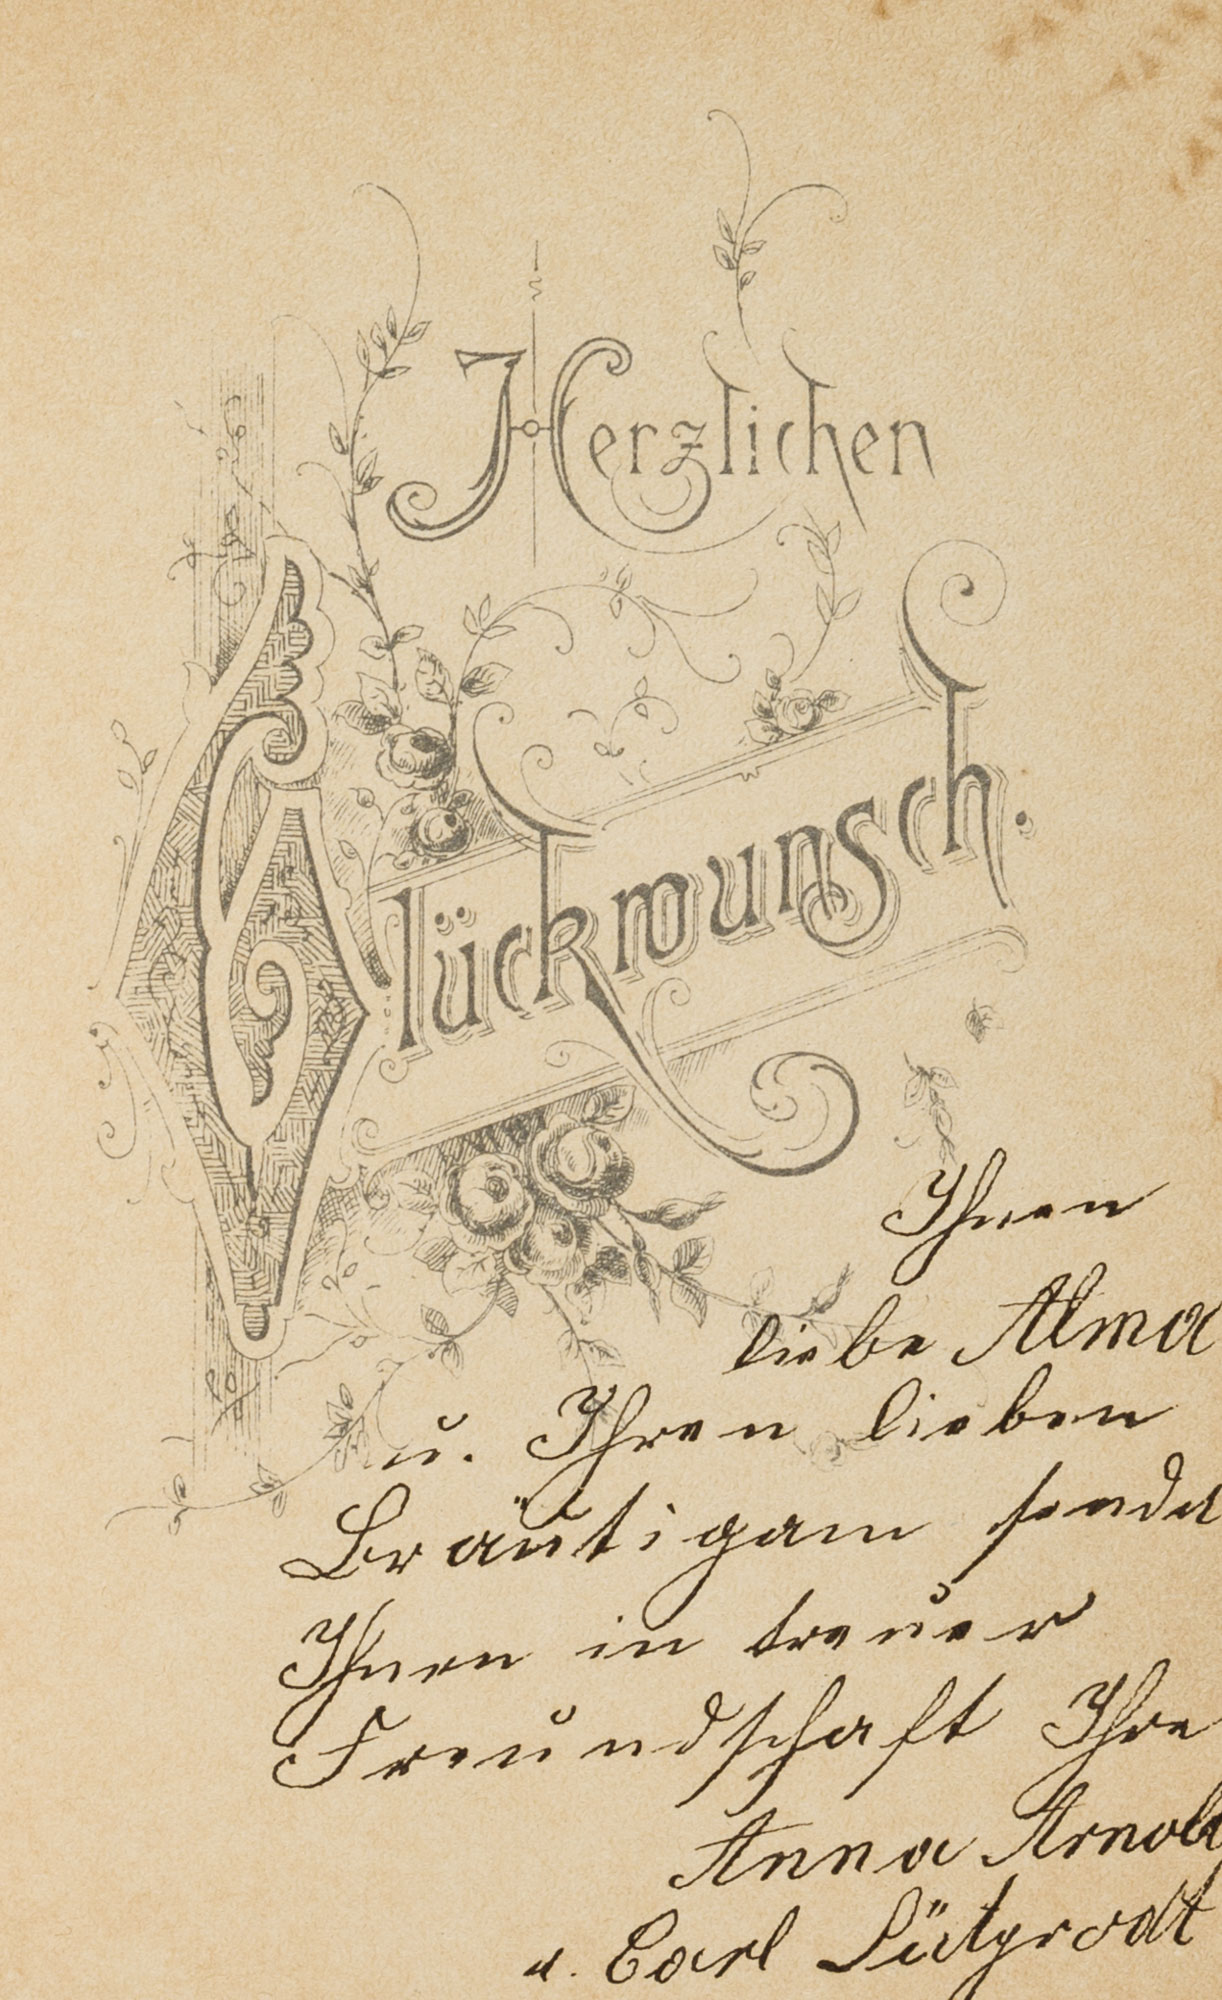 Herzlichen
Glückwunsch.
Ihnen
liebe Alma
u. Ihren lieben
Bräutigam sendet
Ihnen in treuer
Freundschaft Ihre
Anna Arnold
u. Carl Lütgrodt